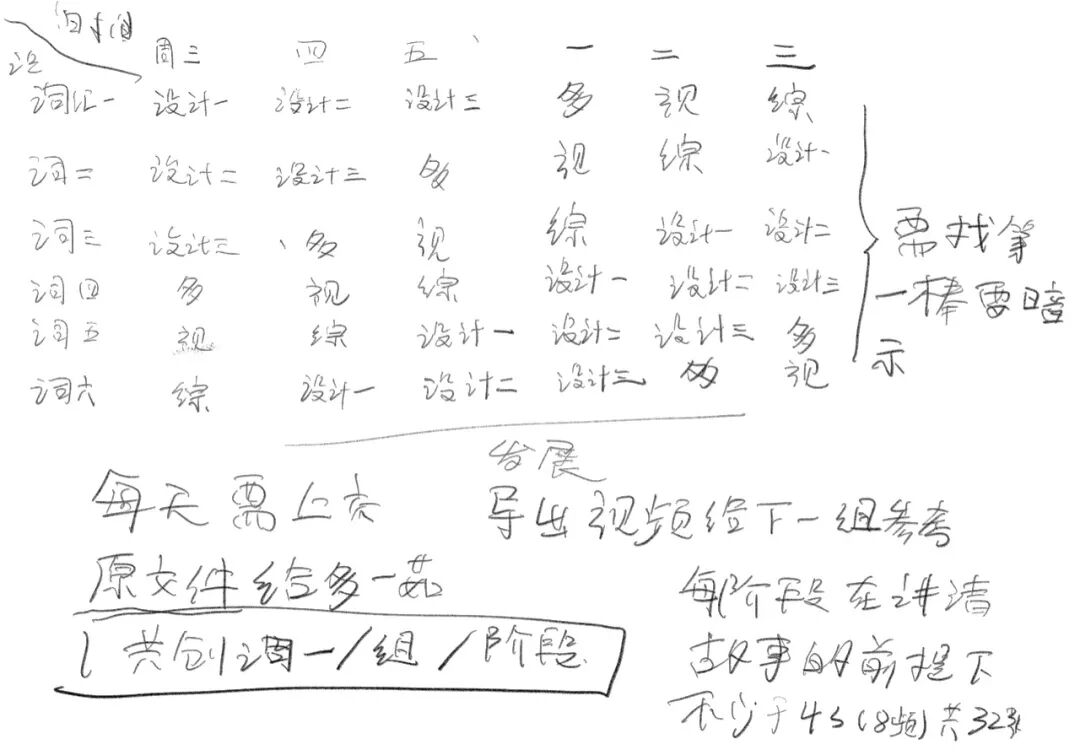 时间
周三 四 五 一 二 三
词汇一 设计一 设计二 设计三 多 视 综
词二 设计二 设计三 多 视 综 设计一
词三 设计三 多 视 综 设计一 设计二
词四 多 视 综 设计一 设计二 设计三
词五 视 综 设计一 设计二 设计三 多
词六 综 设计一 设计二 设计三 多 视
需找第
一棒要暗
示
发展
每天需上交
导出视频给下一组参考
原文件给多一茹
共创词一/组/阶段
每阶段在讲清
故事的前提下
不少于4s(8频)共32张